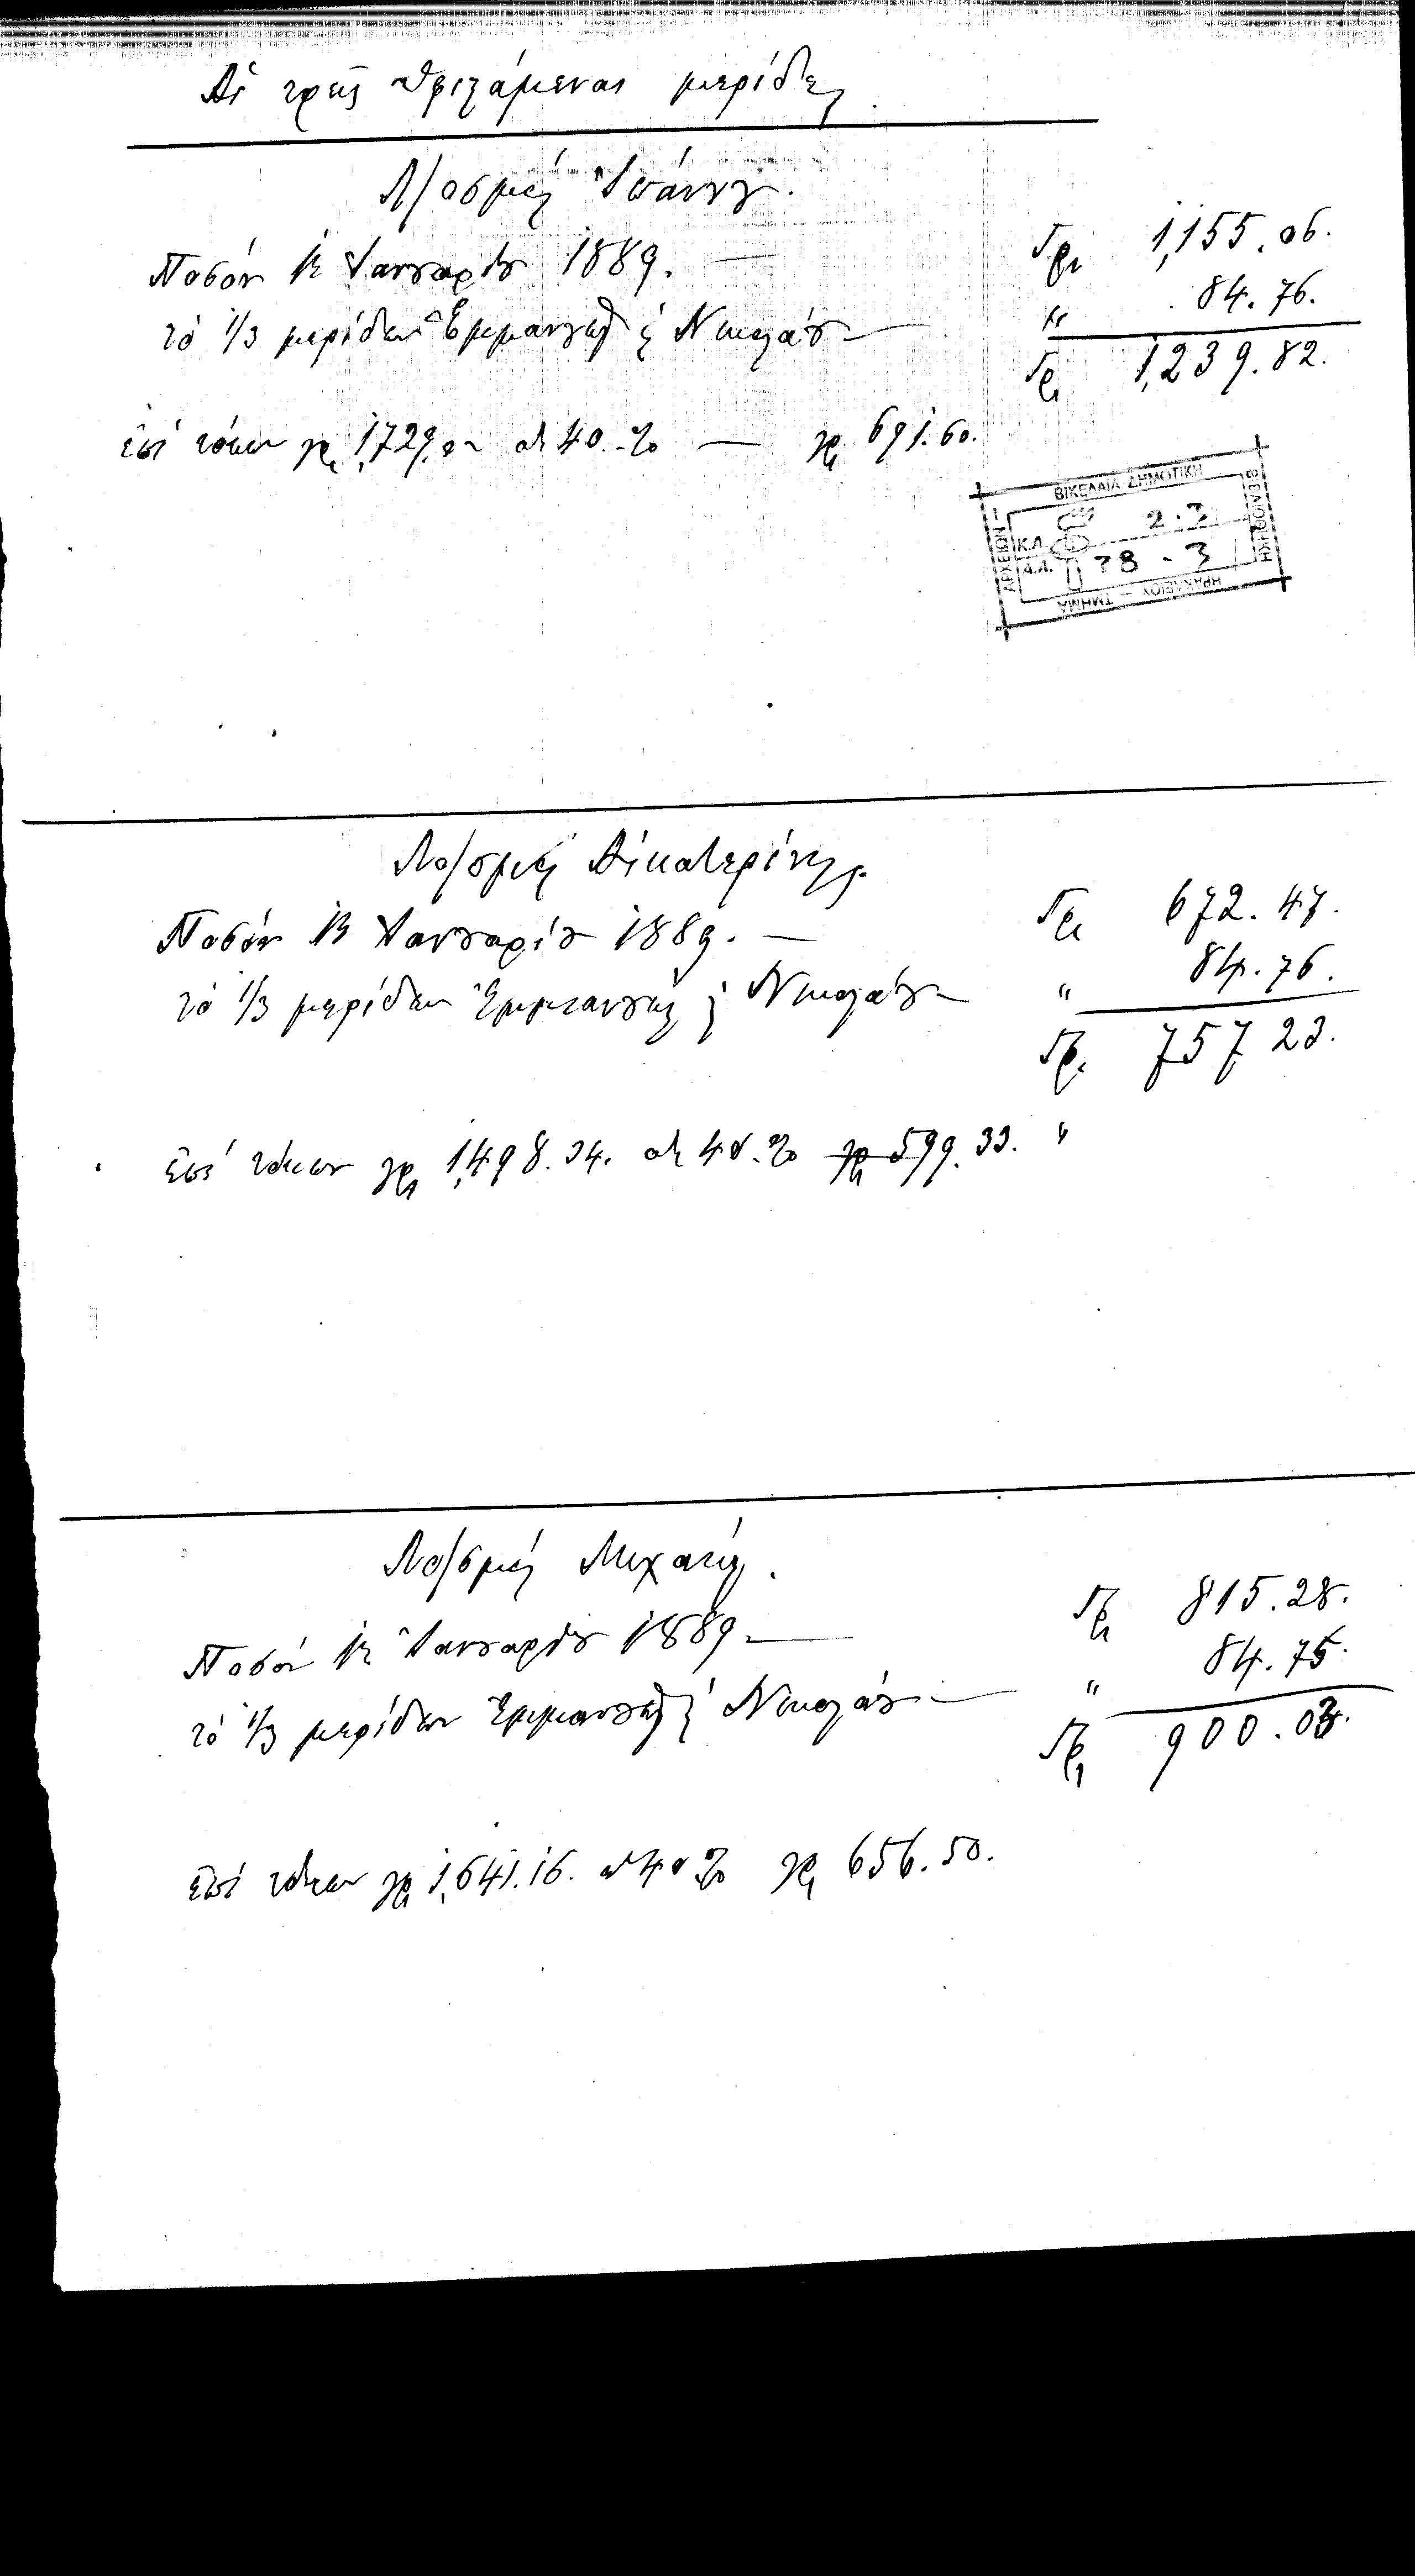 Αἱ τρεῖς ὑφιστάμεναι μερίδες
Λ/σμός Ἰωάννου.
Ποσόν 1η Ἰανουαρίου 1889. — Γρ 1,155.06.
τό 1/3 μερίδων Ἐμμανουήλ & Νικολάου — " 84.76.
Γρ 1,239.82.
ἐπί τόκων γρ 1,729. 40. % — γρ 691.60.
ΒΙΚΕΛΑΙΑ ΔΗΜΟΤΙΚΗ
ΒΙΒΛΙΟΘΗΚΗ
ΗΡΑΚΛΕΙΟΥ — ΤΜΗΜΑ
ΑΡΧΕΙΩΝ —
Κ.Α. 2.3
Α.Λ. 38-3
Λο/σμός Αἰκατερίνης.
Ποσόν 1η Ἰανουαρίου 1889. — Γρ 672.47.
τό 1/3 μερίδων Ἐμμανουήλ & Νικολάου — " 84.76.
Γρ. 757 23.
ἐπί τόκων γρ 1,498.34. 40. % γρ 599.33. "
Λο/σμός Μιχαήλ.
Ποσόν 1η Ἰανουαρίου 1889 — Γρ 815.28.
τό 1/3 μερίδων Ἐμμανουήλ & Νικολάου — " 84.75.
Γρ 900.03.
ἐπί τόκων γρ 1,641.16. 40 % γρ 656.50.